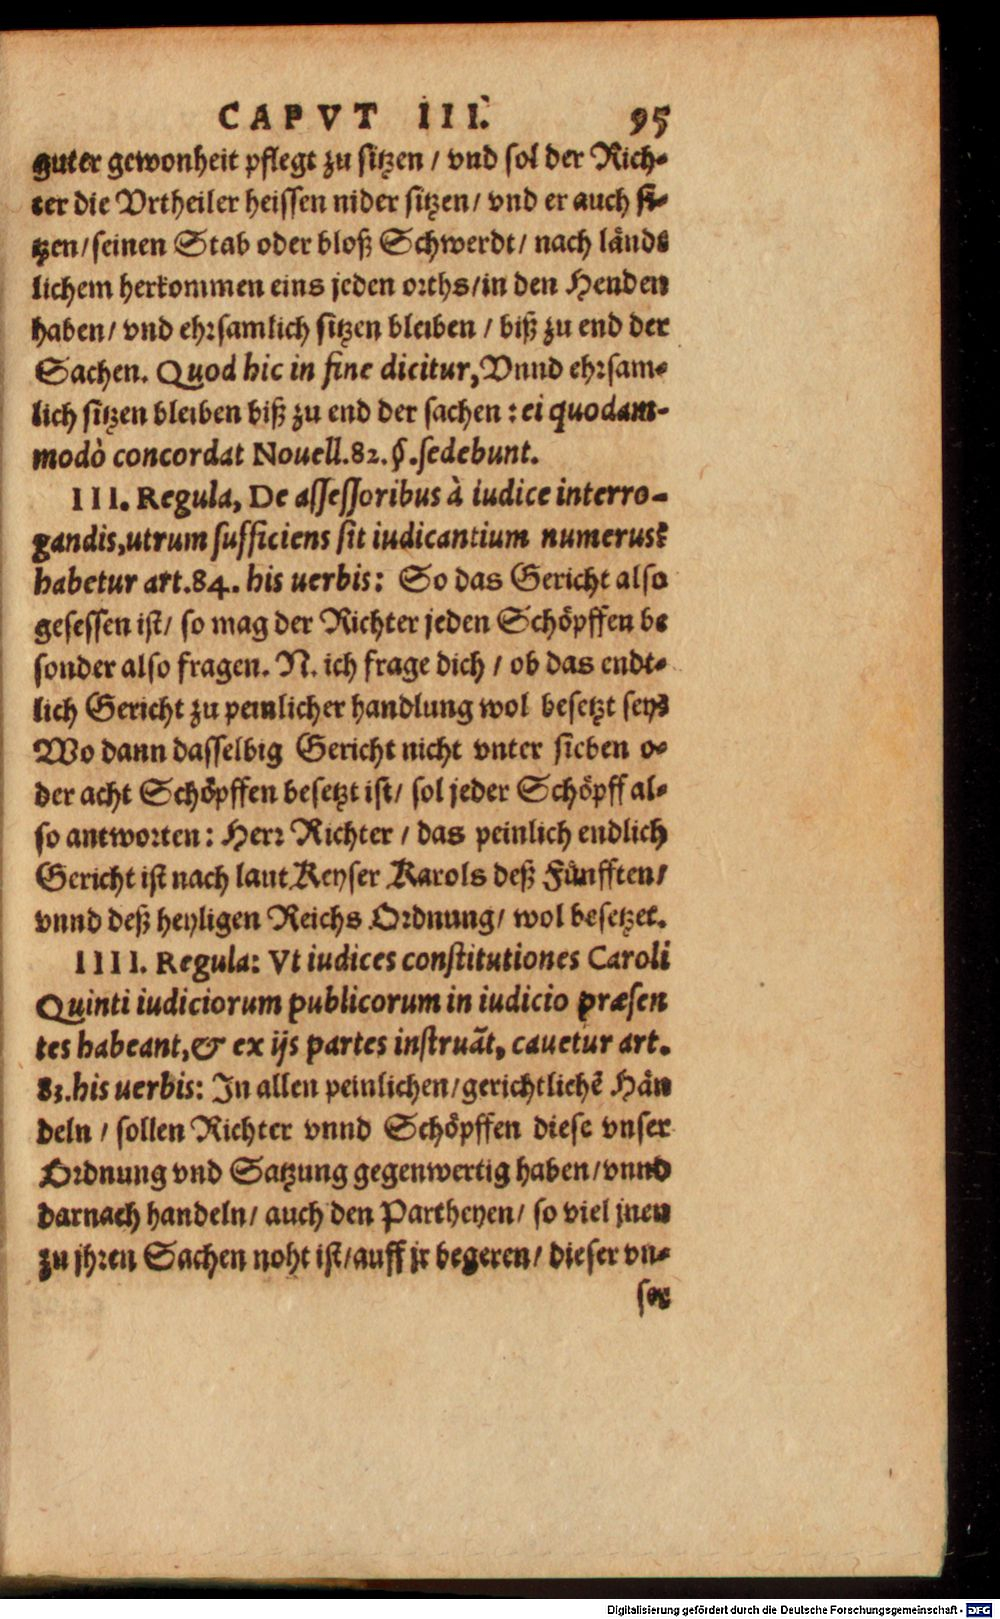 CAPVT III. 95
guter gewonheit pflegt zu sitzen / vnd sol der Rich-
ter die Vrtheiler heissen nider sitzen / vnd er auch si-
tzen / seinen Stab oder bloß Schwerdt / nach länds
lichem herkommen eins jeden orths / in den Henden
haben / vnd ehrsamlich sitzen bleiben / biß zu end der
Sachen. Quod hic in fine dicitur, Vnnd ehrsam-
lich sitzen bleiben biß zu end der sachen : ei quodam-
modò concordat Nouell. 82. §. sedebunt.
III. Regula, De assessoribus à iudice interro-
gandis, utrum sufficiens sit iudicantium numerus?
habetur art. 84. his uerbis: So das Gericht also
gesessen ist / so mag der Richter jeden Schöpffen be
sonder also fragen. N. ich frage dich / ob das endt-
lich Gericht zu peinlicher handlung wol besetzt sey?
Wo dann dasselbig Gericht nicht vnter sieben o-
der acht Schöpffen besetzt ist / sol jeder Schöpff al-
so antworten: Herr Richter / das peinlich endlich
Gericht ist nach laut Keyser Karols deß Fünfften /
vnnd deß heyligen Reichs Ordnung / wol besetzet.
IIII. Regula: Vt iudices constitutiones Caroli
Quinti iudiciorum publicorum in iudicio præsen
tes habeant, & ex ijs partes instruãt, cauetur art.
83. his uerbis: In allen peinlichen / gerichtlichẽ Hän
deln / sollen Richter vnnd Schöpffen diese vnser
Ordnung vnd Satzung gegenwertig haben / vnnd
darnach handeln / auch den Partheyen / so viel jnen
zu jhren Sachen noht ist / auff jr begeren / dieser vn-
ser
Digitalisierung gefördert durch die Deutsche Forschungsgemeinschaft - DFG